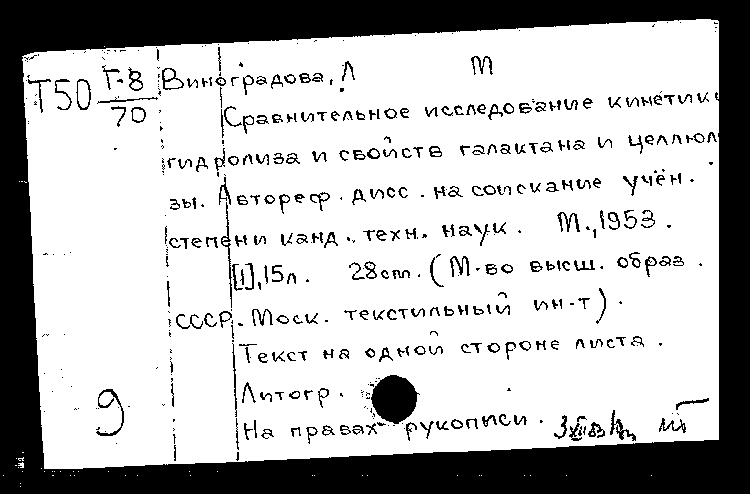 Т50 Г-8 Виноградова, Л М
70
Сравнительное исследование кинетики
гидролиза и свойств галактана и целлюл
зы. Автореф. дисс. на соискание учён.
степени канд. техн. наук. М., 1953.
[1], 15л. 28см. (М-во высш. образ.
СССР. Моск. текстильный ин-т).
Текст на одной стороне листа.
Литогр.
9
На правах рукописи.